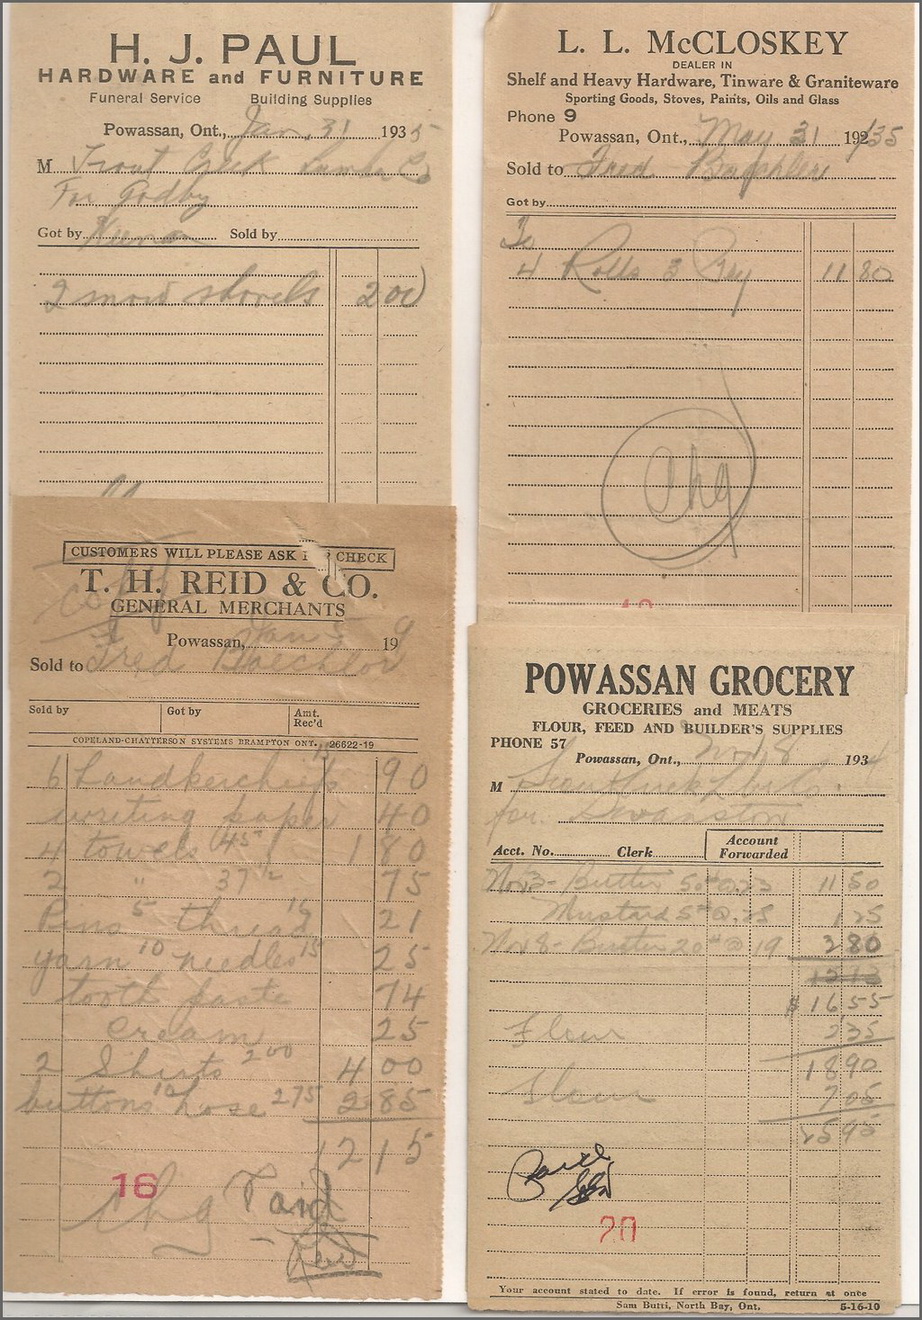 H. J. PAUL
HARDWARE and FURNITURE
Funeral Service Building Supplies
Powassan, Ont., Jan. 31 1935
M Trout Creek Lumber Co
For Godby
Got by Sold by
2 snow shovels 2 00
L. L. McCLOSKEY
DEALER IN
Shelf and Heavy Hardware, Tinware & Graniteware
Sporting Goods, Stoves, Paints, Oils and Glass
Phone 9
Powassan, Ont., May 31 192/35
Sold to Fred Baechler
Got by
To
4 Rolls 3 Ply 11 80
Chg
CUSTOMERS WILL PLEASE ASK FOR CHECK
T. H. REID & CO.
GENERAL MERCHANTS
Powassan, Jan 5 19
Sold to Fred Baechlor
Sold by Got by Amt. Rec'd
COPELAND-CHATTERSON SYSTEMS BRAMPTON ONT. 26622-19
6 handkerchiefs 90
writing paper 40
4 towels 45 1 80
2 " 37 1/2 75
Pins 5 thread 16 21
yarn 10 needles 15 25
tooth paste 74
cream 25
2 Shirts 2 00 4 00
buttons 10 hose 2 75 2 85
12 15
16
Chg Paid
POWASSAN GROCERY
GROCERIES and MEATS
FLOUR, FEED AND BUILDER'S SUPPLIES
PHONE 57
Powassan, Ont., Nov. 8 193
M
for Swanston
Acct. No. Clerk Account Forwarded
Nov 3- Butter 50# @ .23 11 50
Mustard 5# @ .25 1 25
Nov 8- Butter 20# @ 19 3 80
$ 16 55
Flour 2 35
18 90
Flour 7 05
25 95
20
Your account stated to date. If error is found, return at once
Sam Butti, North Bay, Ont. 5-16-10